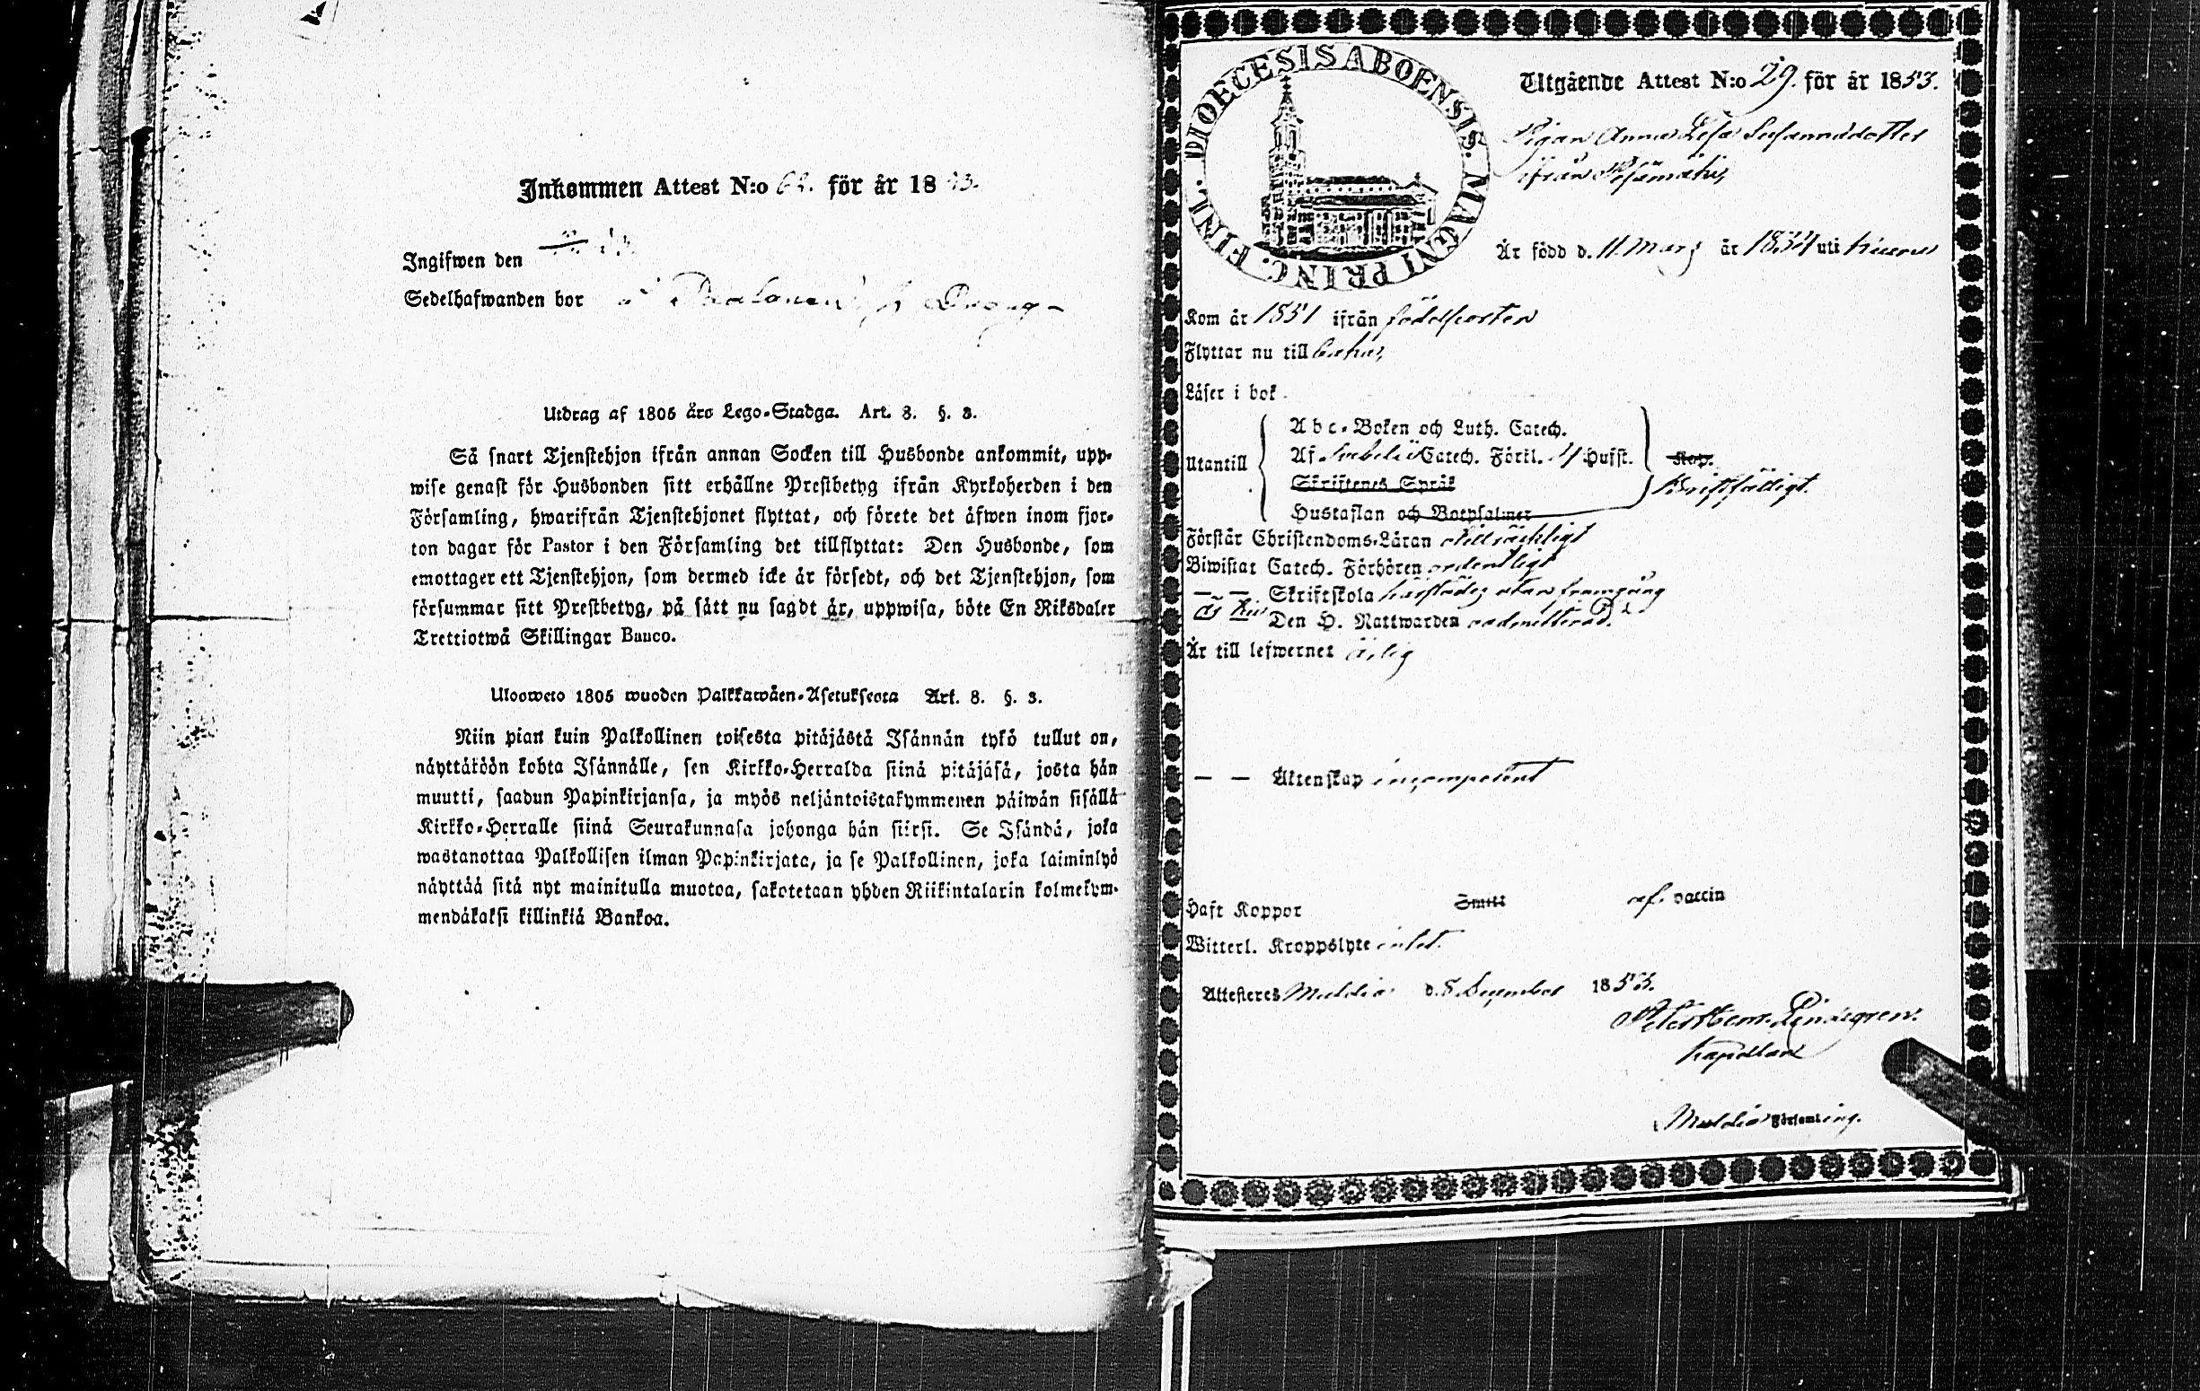 Inkommen Attest N:o 62. för år 18 53.
Ingifwen den
Sedelhafwanden bor
Utdrag af 1805 års Lego-Stadga. Art. 8. §. 3.
Så snart Tjenstehjon ifrån annan Socken till Husbonde ankommit, upp-
wise genast för Husbonden sitt erhållne Prestbetyg ifrån Kyrkoherden i den
Församling, hwarifrån Tjenstehjonet flyttat, och förete det äfwen inom fjor-
ton dagar för Pastor i den Församling det tillflyttat: Den Husbonde, som
emottager ett Tjenstehjon, som dermed icke är försedt, och det Tjenstehjon, som
försummar sitt Prestbetyg, på sätt nu sagdt är, uppwisa, böte En Riksdaler
Trettiotwå Skillingar Banco.
Ulosweto 1805 wuoden Palkkawäen-Asetuksesta Art. 8. §. 3.
Niin pian kuin Palkollinen toisesta pitäjästä Isännän tykö tullut on,
näyttäköön kohta Isännälle, sen Kirkko-Herralda siinä pitäjäsä, josta hän
muutti, saadun Papinkirjansa, ja myös neljäntoistakymmenen päiwän sisällä
Kirkko-Herralle siinä Seurakunnasa johonga hän siirsi. Se Isändä, joka
wastanottaa Palkollisen ilman Papinkirjata, ja se Palkollinen, joka laiminlyö
näyttää sitä nyt mainitulla muotoa, sakotetaan yhden Riikintalarin kolmekym-
mendäkaksi killinkiä Bankoa.
DIOECESIS ABOENSIS. MAGNI PRINC. FINL.
Utgående Attest N:o 29. för år 1853.
Pigan Anna Lisa Susannadotter
ifrån
Är född d. 11 Mars år 1834 uti
Kom år 1851 ifrån födelseorten
Flyttar nu till
Läser i bok
Utantill
Abc-Boken och Luth. Catech.
Af Svebelii Catech. Förkl. Hufst.
Skriftenes Språk
Hustaflan och Botpsalmer
Kop.
Bristfälligt.
Förstår Christendoms-Läran otillräckligt
Biwistat Catech. Förhören ordentligt
— — Skriftskola härstädes utan framgång
Den H. Nattwarden oadmitterad.
Är till lefwernet ärlig
— — Äktenskap incompetent
Haft Koppor Smitt af vaccin
Witterl. Kroppslyte intet.
Attesteres Muldia d. 8 December 1853.
Peter Herm. Lindegren.
Kapellan
Muldia Församling.